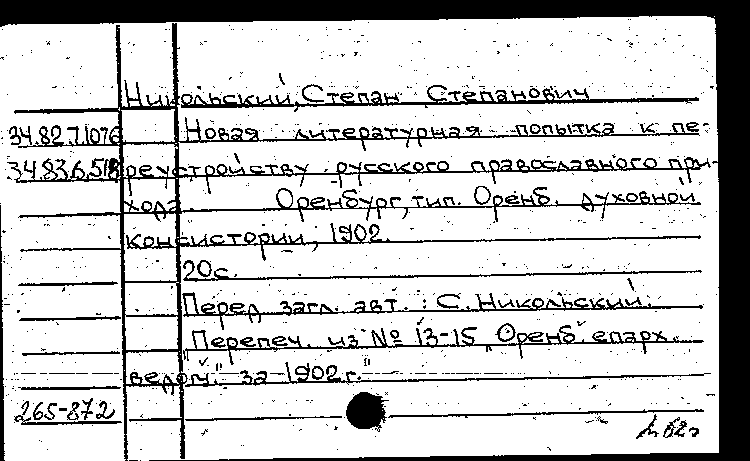 Никольский, Степан Степанович
34.82.7.1076 Новая литературная попытка к пе-
34.83.6.518 реустройству русского православного при-
хода. Оренбург, тип. Оренб. духовной
консистории, 1902.
20с.
Перед загл. авт.: С. Никольский.
"Перепеч. из № 13-15 "Оренб. епарх.
ведом." за 1902 г."
265-872